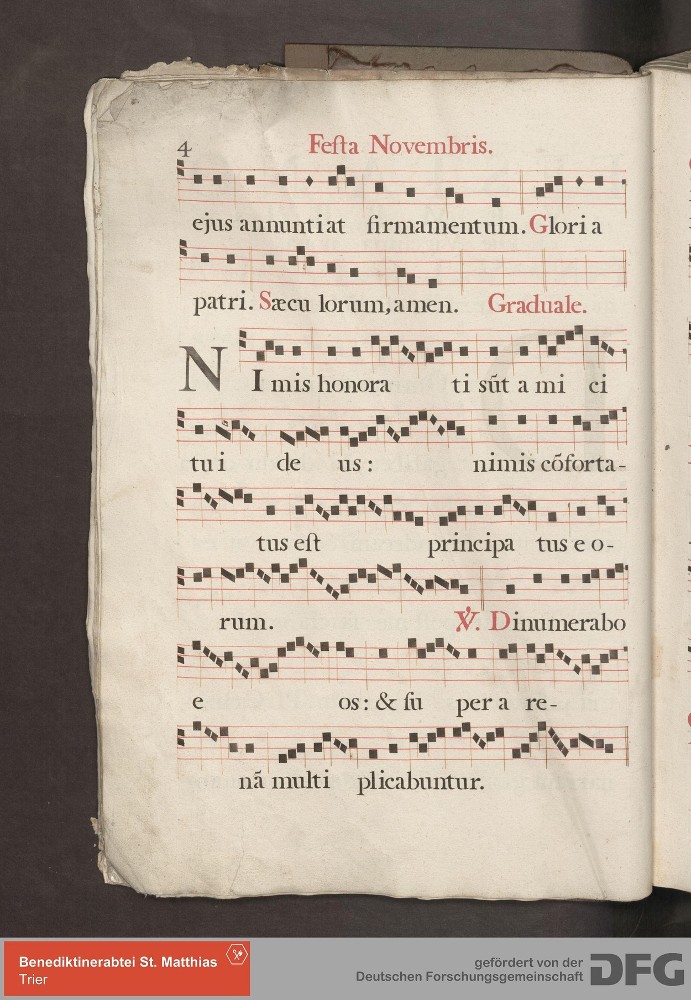 4
Feſta Novembris.
ejus annuntiat firmamentum. Gloria
patri. Sæcu lorum, amen. Graduale.
N I mis honora ti sũt a mi ci
tu i de us : nimis cõforta-
tus eſt principa tus e o-
rum. ℣. Dinumerabo
e os: & ſu per a re-
nã multi plicabuntur.
Benediktinerabtei St. Matthias
Trier
gefördert von der
Deutschen Forschungsgemeinschaft
DFG